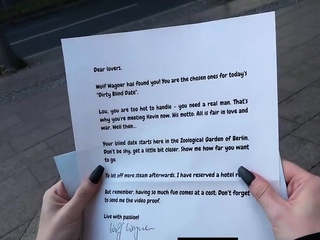 Dear lovers,
Wolf Wagner has found you! You are the chosen ones for today's
"Dirty Blind Date".
Lou, you are too hot to handle – you need a real man. That's
why you're meeting Kevin now. His motto: All is fair in love and
war. Well then...
Your blind date starts here in the Zoological Garden of Berlin.
Don't be shy, get a little bit closer. Show me how far you want
to go.
To let off more steam afterwards, I have reserved a hotel
But remember, having so much fun comes at a cost. Don't forget
to send me the video proof.
Live with passion!
Wolf Wagner